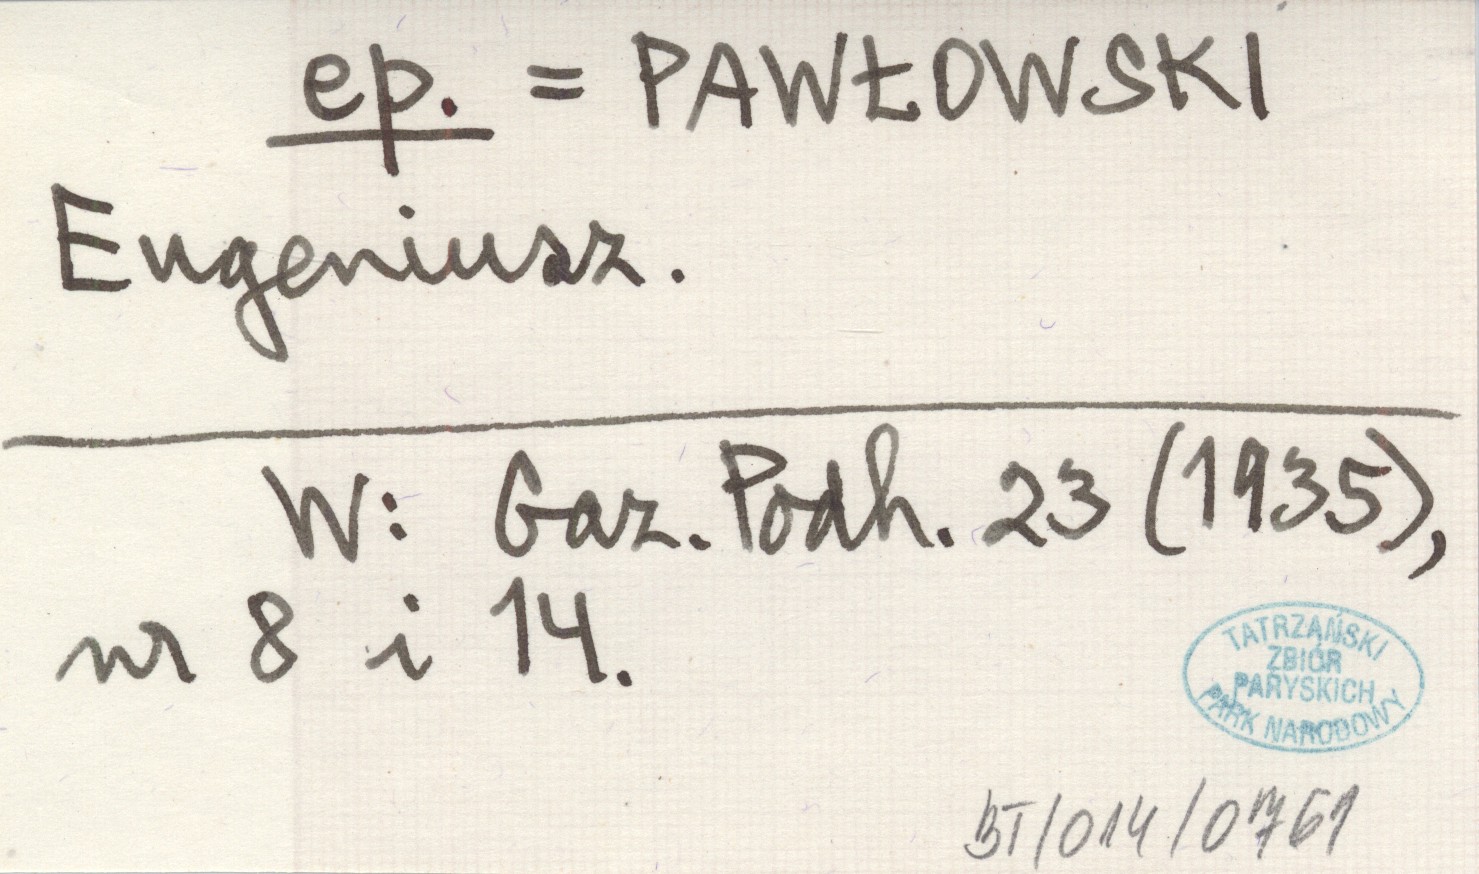 ep. = PAWŁOWSKI
Eugeniusz.
W: Gaz. Podh. 23 (1935),
nr 8 i 14.
TATRZAŃSKI
ZBIÓR
PARYSKICH
PARK NARODOWY
BT/014/0761